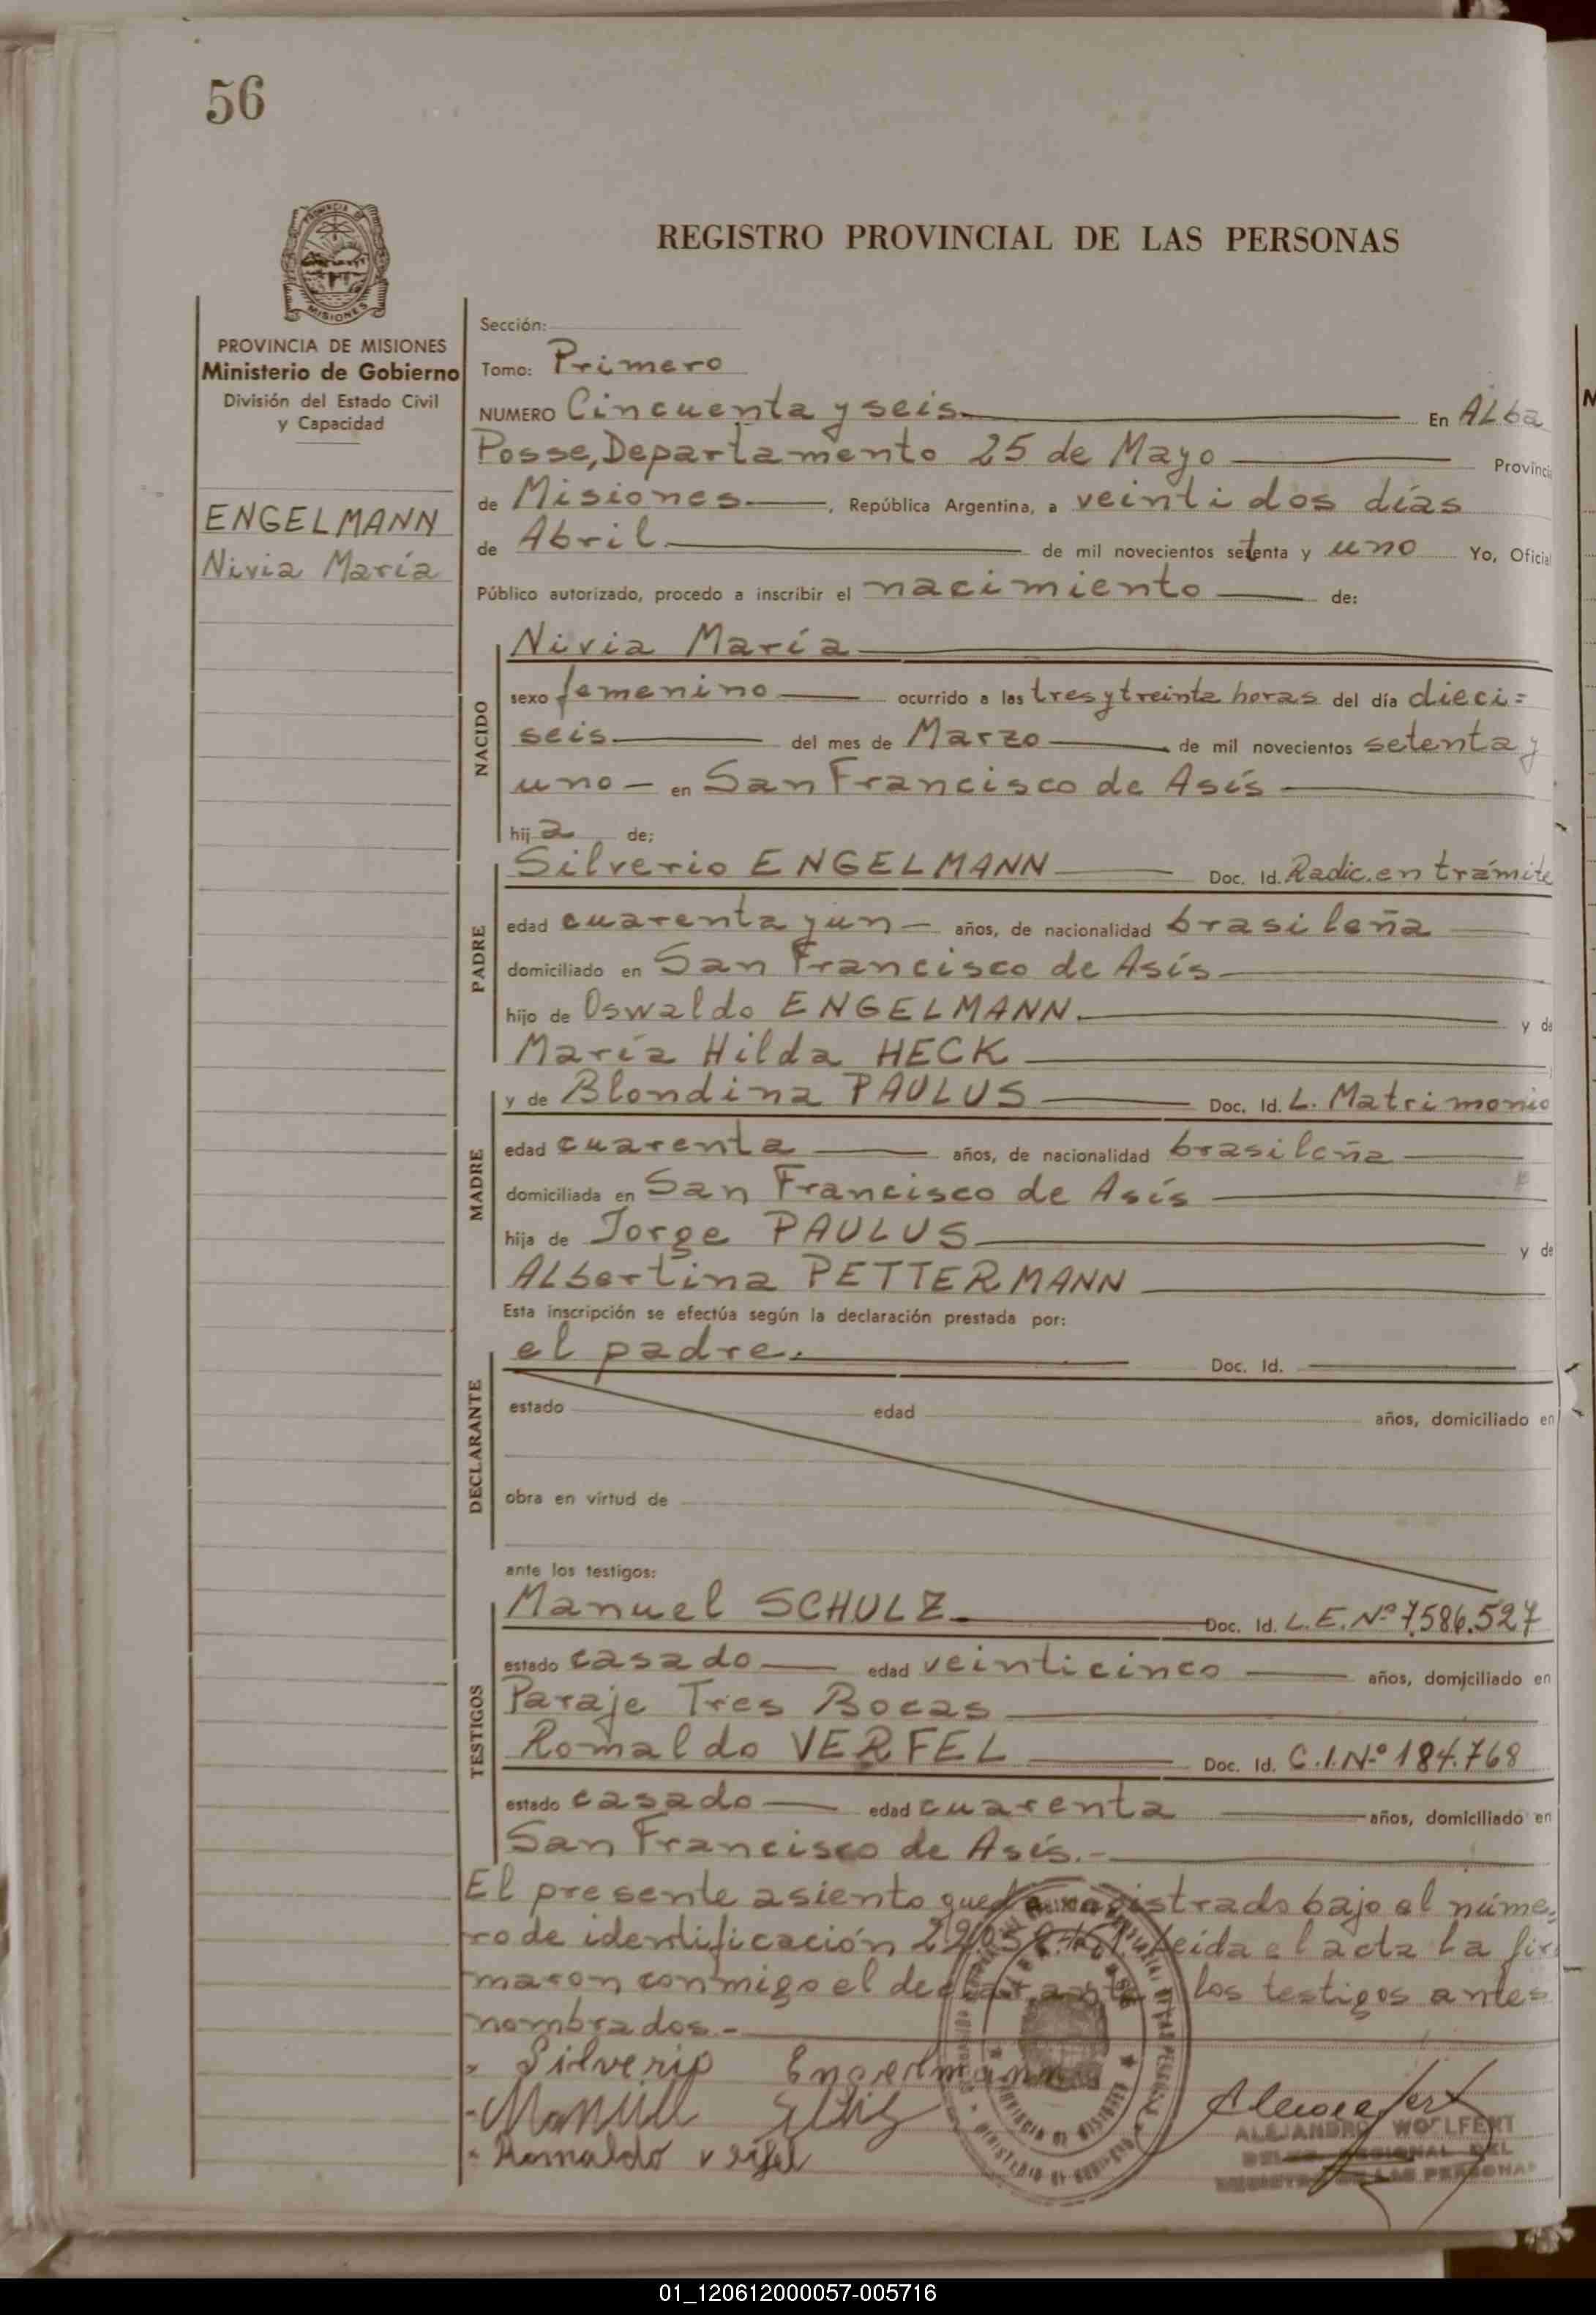 56
PROVINCIA DE
MISIONES
REGISTRO PROVINCIAL DE LAS PERSONAS
PROVINCIA DE MISIONES
Ministerio de Gobierno
División del Estado Civil
y Capacidad
ENGELMANN
Nivia María
Sección:
Tomo: Primero
NUMERO Cincuenta y seis En Alba
Posse, Departamento 25 de Mayo Provinci
de Misiones, República Argentina, a veintidos días
de Abril de mil novecientos setenta y uno Yo, Oficial
Público autorizado, procedo a inscribir el nacimiento de:
NACIDO
Nivia María
sexo femenino ocurrido a las tres y treinta horas del día dieci=
seis del mes de Marzo de mil novecientos setenta y
uno - en San Francisco de Asís
hija de;
PADRE
Silverio ENGELMANN Doc. Id. Radic. en trámite
edad cuarenta y un - años, de nacionalidad brasileña
domiciliado en San Francisco de Asís
hijo de Oswaldo ENGELMANN. y de
María Hilda HECK
MADRE
y de Blondina PAULUS Doc. Id. L. Matrimonio
edad cuarenta años, de nacionalidad brasileña
domiciliada en San Francisco de Asís
hija de Jorge PAULUS y de
Albertina PETTERMANN
Esta inscripción se efectúa según la declaración prestada por:
DECLARANTE
el padre. Doc. Id.
estado edad años, domiciliado en
obra en virtud de
ante los testigos:
TESTIGOS
Manuel SCHULZ Doc. Id. L.E. Nº 7.586.527
estado casado edad veinticinco años, domiciliado en
Paraje Tres Bocas
Romaldo VERFEL Doc. Id. C.I. Nº 184.768
estado casado edad cuarenta años, domiciliado en
San Francisco de Asís.-
El presente asiento queda registrado bajo el núme=
ro de identificación Leida el acta la fir
maron conmigo el declarante los testigos antes
nombrados.-
Silverio Engelmann
Manuel
Romaldo Verfel
ALEJANDRO WOLFERT
REGIONAL DEL
REGISTRO DE LAS PERSONAS
01_120612000057-005716